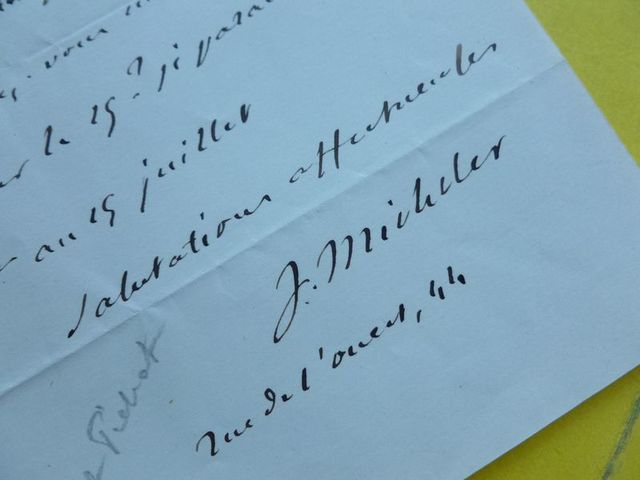 vous
le 15? je parai
au 15 juillet
Salutations affectueuses
J. Michelet
rue de l'ouest, 44
Pichat